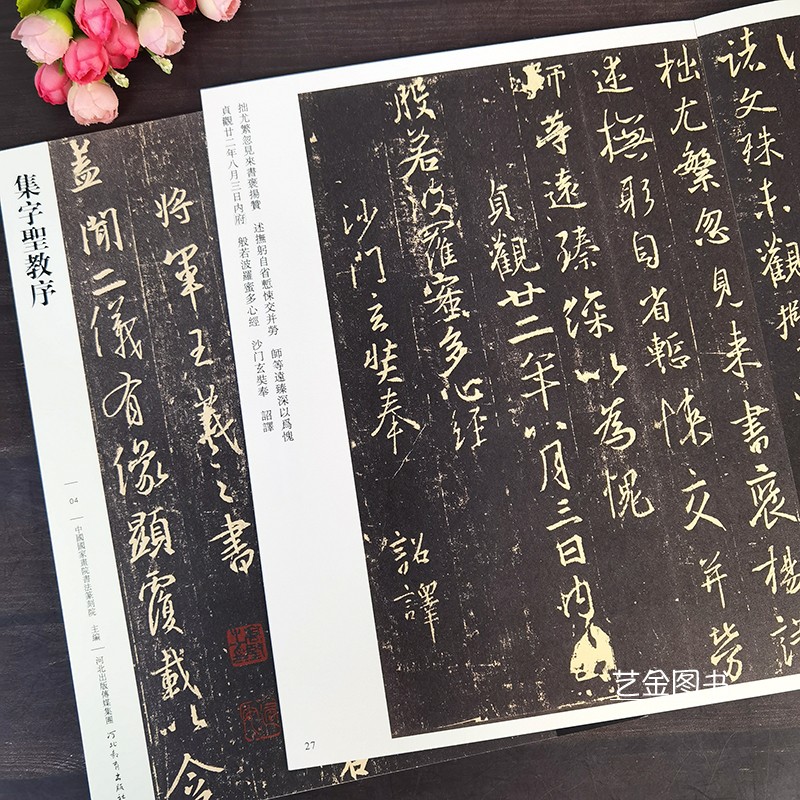 集字聖教序
04
中國國家畫院書法篆刻院 主編
河北出版傳媒集團
河北教育出版社
將軍王羲之書
蓋聞二儀有像顯覆載以含
諸文殊未觀攬
拙尤繁忽見來書褒揚讃
述撫躬自省慙悚交并勞
師等遠臻深以為愧
貞觀廿二年八月三日內府
般若波羅蜜多心經
沙門玄奘奉 詔譯
拙尤繁忽見來書褒揚贊 述撫躬自省慙悚交并勞 師等遠臻深以爲愧
貞觀廿二年八月三日內府 般若波羅蜜多心經 沙门玄奘奉 詔譯
27
艺金图书